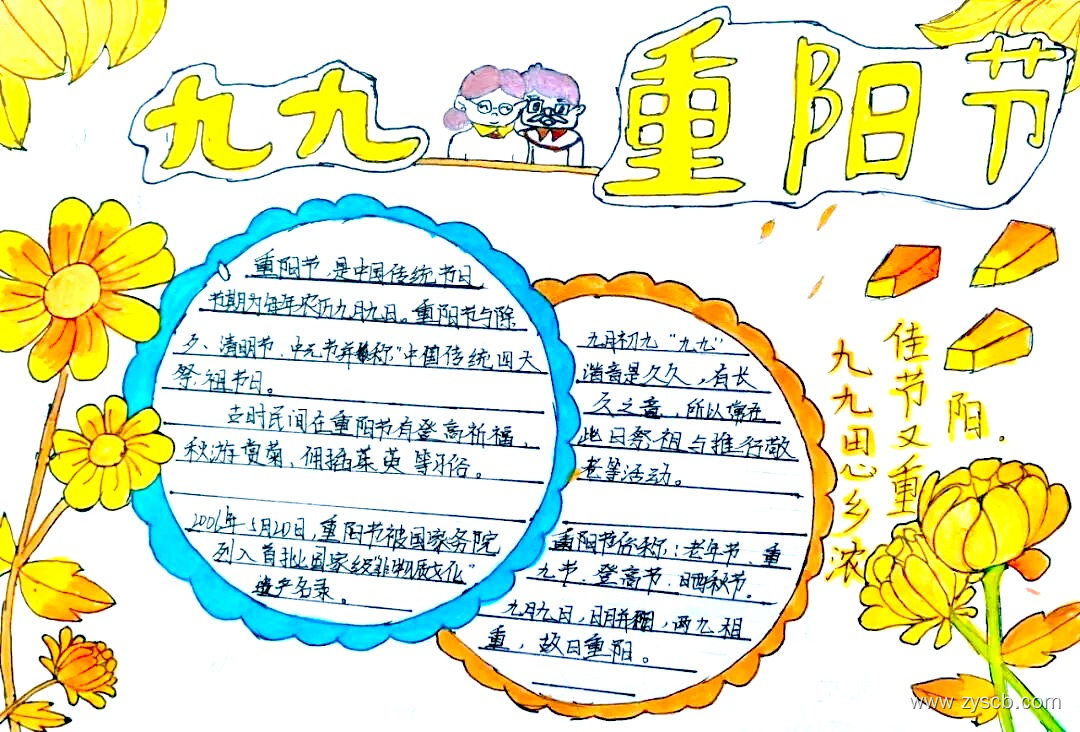 九九
重阳节
重阳节,是中国传统节日
节期为每年农历九月九日。重阳节与除
夕、清明节、中元节并称"中国传统四大
祭祖节日。
古时民间在重阳节有登高祈福、
秋游赏菊、佩插茱萸等习俗。
2006年5月20日,重阳节被国家务院
列入首批国家级非物质文化"
遗产名录。
九月初九"九九"
谐音是久久,有长
久之意,所以常在
此日祭祖与推行敬
老等活动。
重阳节俗称:老年节、重
九节、登高节、晒秋节。
九月九日,日月并,两九相
重,故曰重阳。
佳节又重
阳.
九九思乡浓
www.zyscb.com